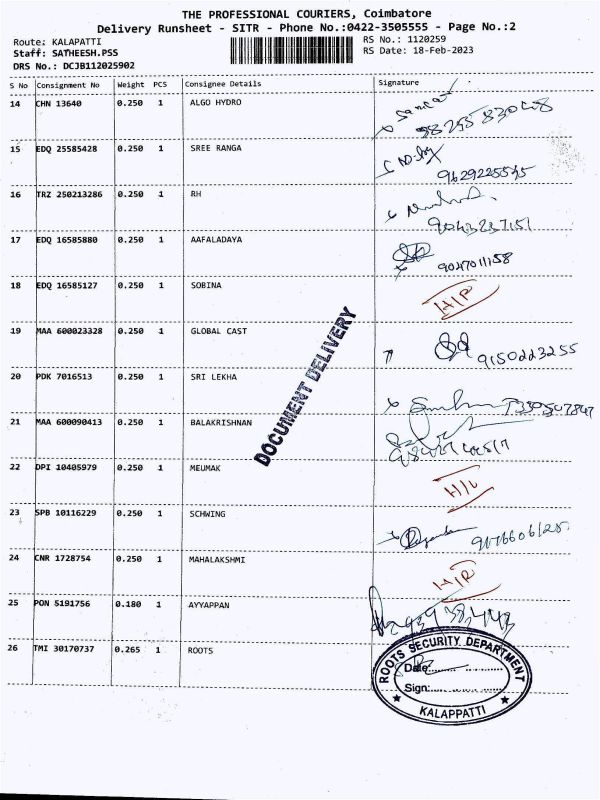 THE PROFESSIONAL COURIERS, Coimbatore
Delivery Runsheet - SITR - Phone No.:0422-3505555 - Page No.:2
Route: KALAPATTI
RS No.: 1120259
Staff: SATHEESH.PSS
RS Date: 18-Feb-2023
DRS No.: DCJB112025902
S No Consignment No Weight PCS Consignee Details Signature
14 CHN 13640 0.250 1 ALGO HYDRO
15 EDQ 25585428 0.250 1 SREE RANGA
16 TRZ 250213286 0.250 1 RH
9043237151
17 EDQ 16585880 0.250 1 AAFALADAYA
9047011158
18 EDQ 16585127 0.250 1 SOBINA
19 MAA 600023328 0.250 1 GLOBAL CAST
9150223255
20 PDK 7016513 0.250 1 SRI LEKHA
21 MAA 600090413 0.250 1 BALAKRISHNAN
22 DPI 10405979 0.250 1 MEUMAK
23 SPB 10116229 0.250 1 SCHWING
24 CNR 1728754 0.250 1 MAHALAKSHMI
25 PON 5191756 0.180 1 AYYAPPAN
26 TMI 30170737 0.265 1 ROOTS
DOCUMENT DELIVERY
ROOTS SECURITY DEPARTMENT
Date:
Sign:
KALAPPATTI